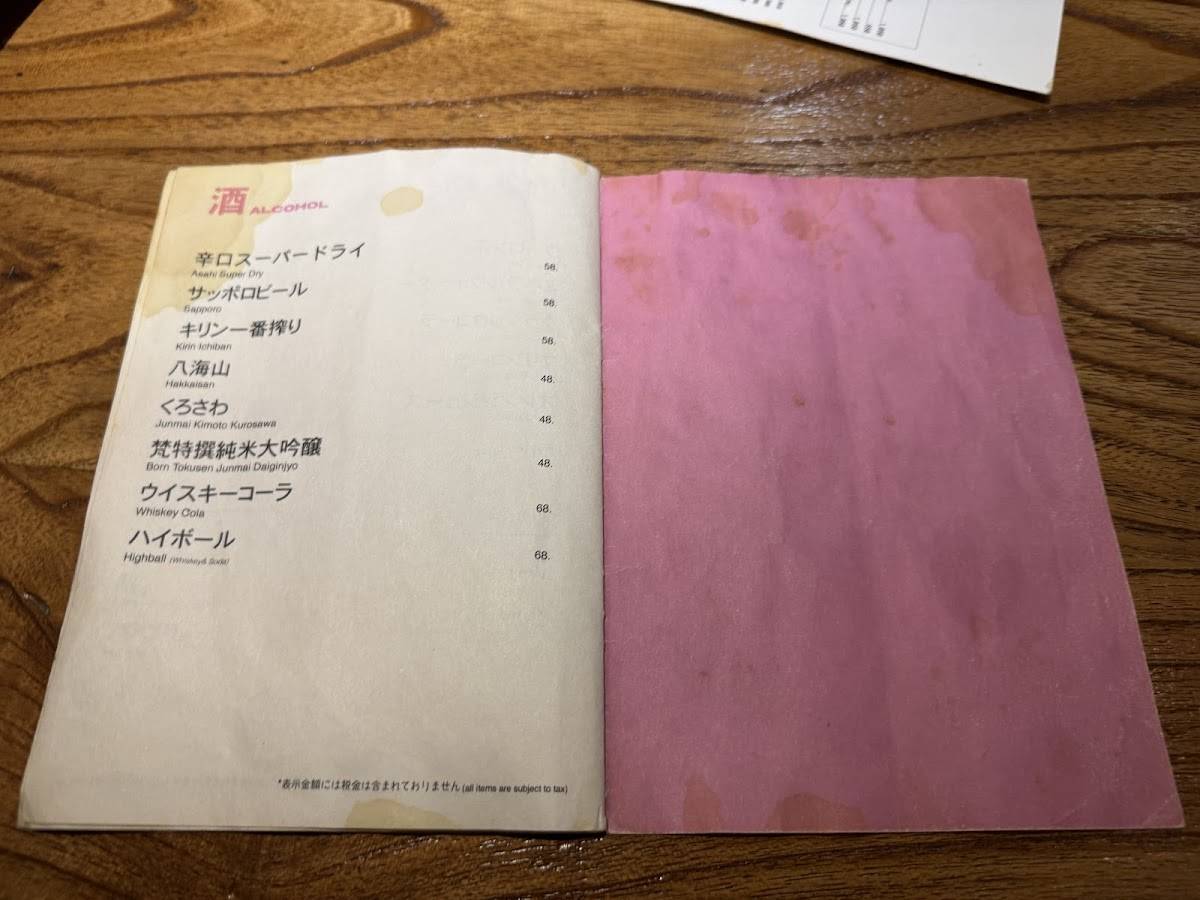 酒 ALCOHOL
辛口スーパードライ 58.
Asahi Super Dry
サッポロビール 58.
Sapporo
キリン一番搾り 58.
Kirin Ichiban
八海山 48.
Hakkaisan
くろさわ 48.
Junmai Kimoto Kurosawa
梵特撰純米大吟醸 48.
Born Tokusen Junmai Daiginjyo
ウイスキーコーラ 68.
Whiskey Cola
ハイボール 68.
Highball (Whiskey& Soda)
*表示金額には税金は含まれておりません (all items are subject to tax)